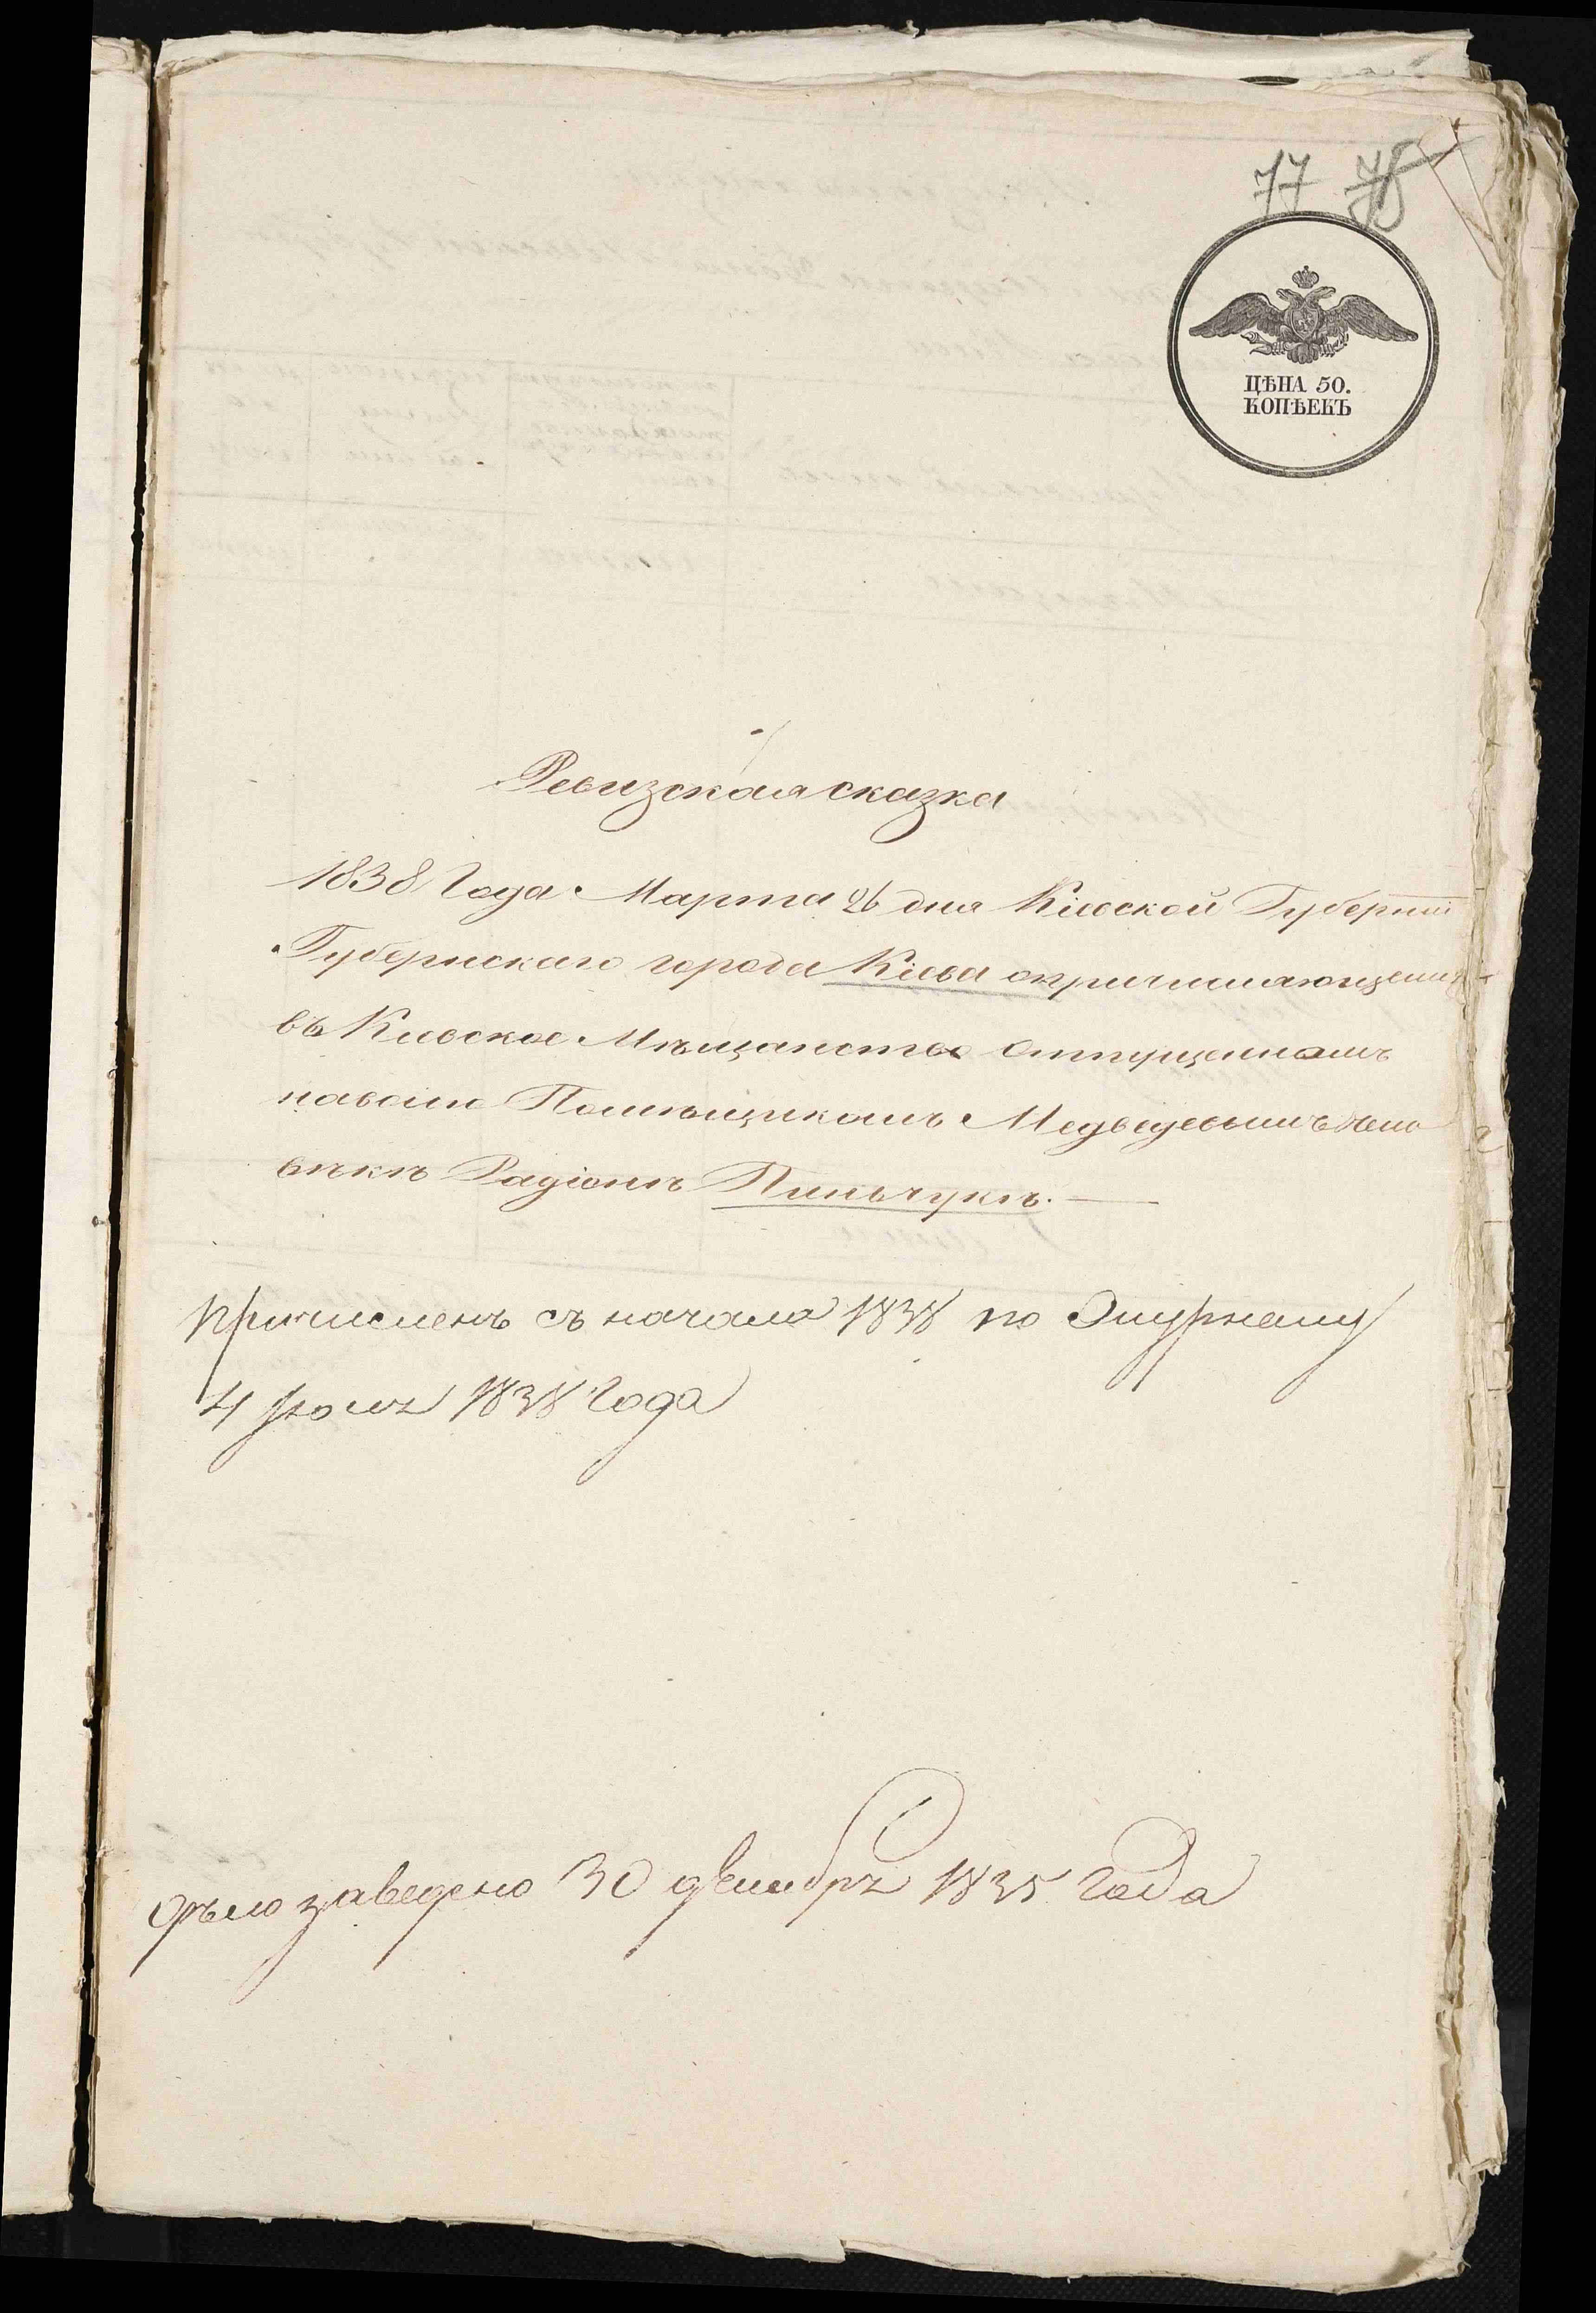 77 78
ЦѢНА 50.
КОПѢЕКЪ
Ревизская сказка
1838 Года Марта 26 дня Кіевской Губерніи
Губернскаго города Кіева опричисляющемся
въ Киевское Мѣщанство отпущенномъ
наволю Помѣщикомъ Медведевымъ чело
векѣ Радіонѣ Пинчукѣ.
Причисленъ съ начала 1838 по
4 1838 Года
дѣло заведено 30 декабря 1835 года